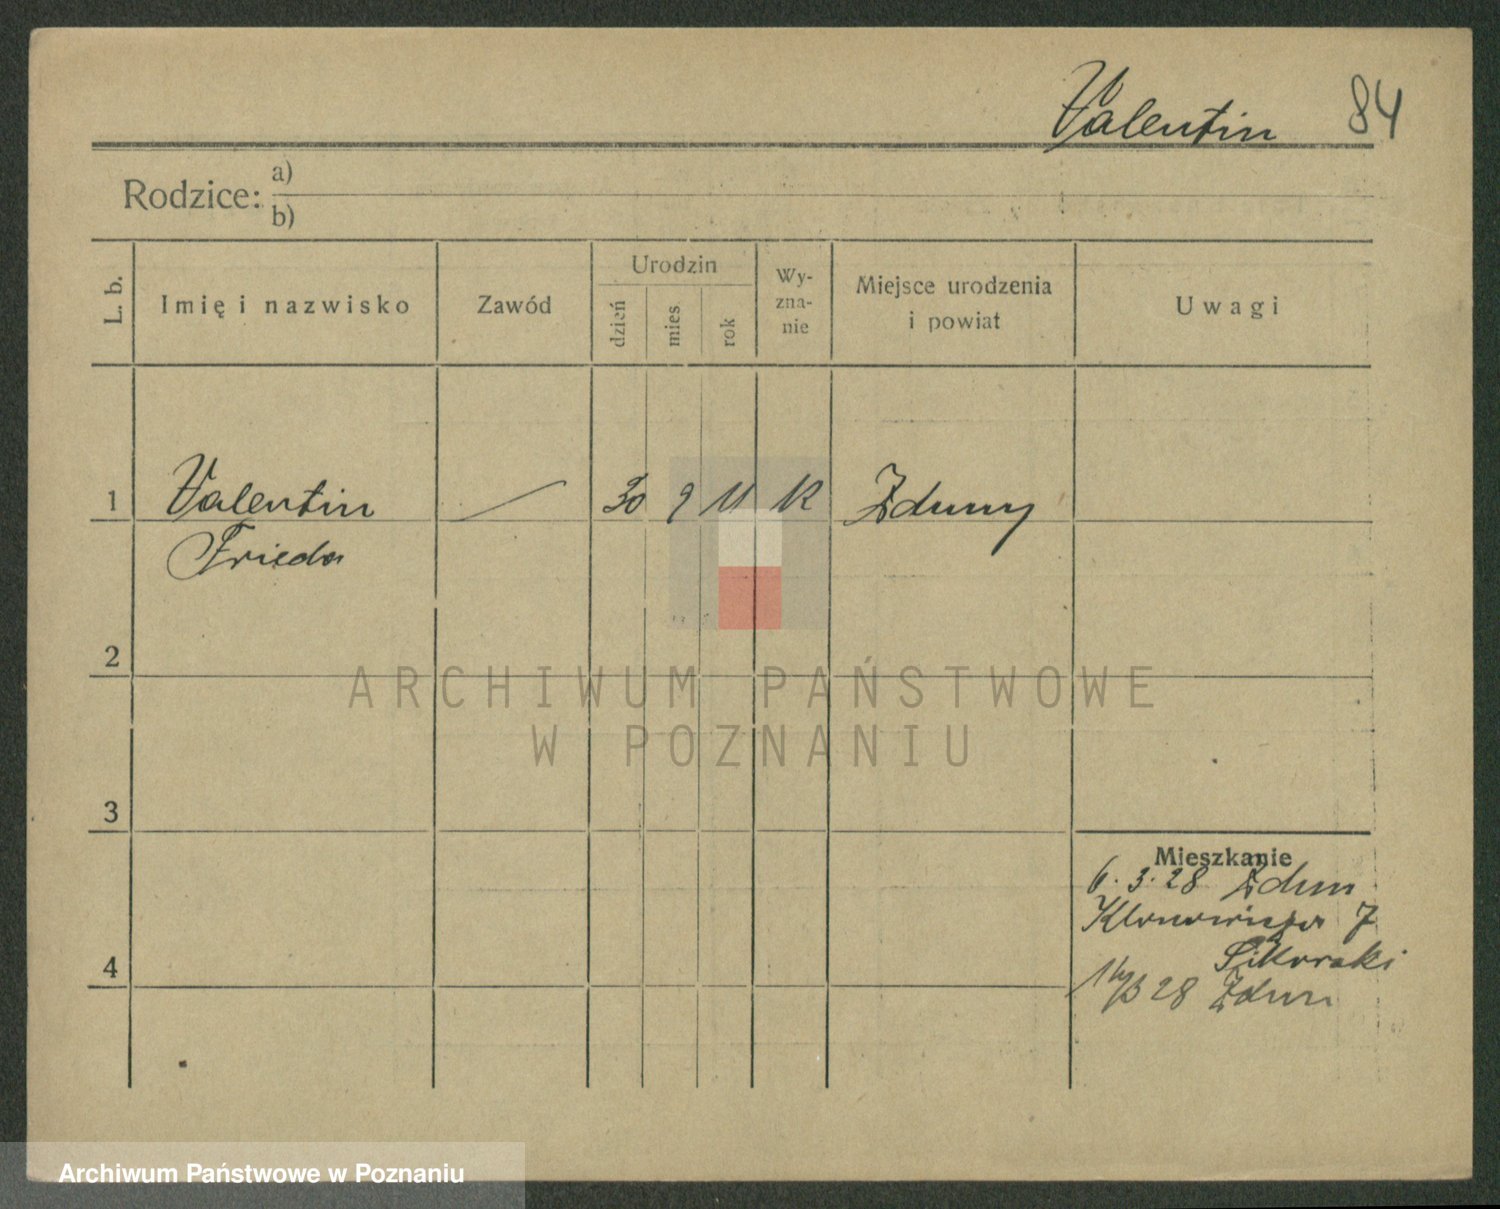 Valentin 84
Rodzice: a)
b)
L. b. Imię i nazwisko Zawód Urodzin dzień mies. rok Wy-zna-nie Miejsce urodzenia i powiat Uwagi
1 Valentin 30 9 11 K Zduny
Frieda
2
ARCHIWUM PAŃSTWOWE
W POZNANIU
3
Mieszkanie
6. 3. 28 Zdun
7
4 Sikorski
28 Zdun
Archiwum Państwowe w Poznaniu